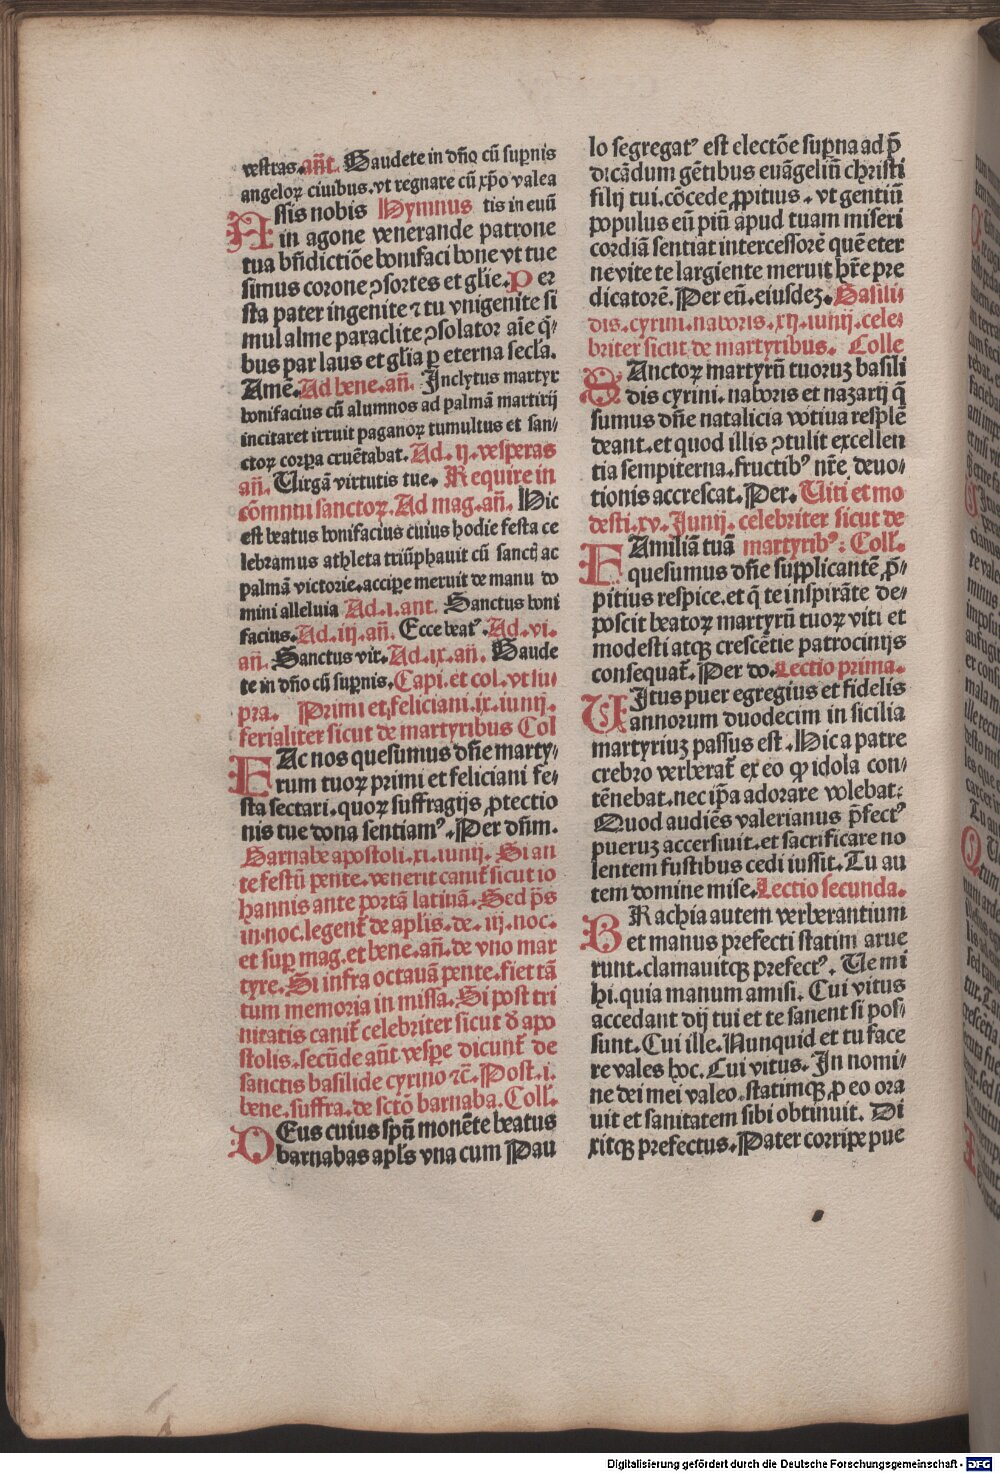 vestras. añt. Gaudete in dño cū supnis
angelorꝝ ciuibus. vt regnare cū xp̄o valea
ASsis nobis Hymnus tis in euū
in agone venerande patrone
tua bn̄dictiōe bonifaci bone vt tue
simus corone ꝯsortes et glie. Per
sta pater ingenite ⁊ tu vnigenite si
mul alme paraclite ꝯsolator aīe q̄⸗
bus par laus et glīa ꝑ eterna secl̄a.
Amē. Ad bene. añ. Inclytus martyr
bonifacius cū alumnos ad palmā martirij
incitaret irruit paganoꝝ tumultus et san⸗
ctoꝝ corpa cruētabat. Ad. ij. vesperas
añ. Virgā virtutis tue. Require in
cōmntu sanctoꝝ. Ad mag. añ. Hic
est beatus bonifacius cuius hodie festa ce
lebramus athleta triūphauit cū sanctꝭ ac
palmā victorie. accipe meruit de manu do
mini alleluia Ad. i. ant. Sanctus boni
facius. Ad. iij. añ. Ecce beatꝰ. Ad. vi.
añ. Sanctus vir. Ad. ix. añ. Gaude
te in dño cū supnis. Capi. et col. vt su
pra. Primi et feliciani. ix. iunij.
ferialiter sicut de martyribus Col
FAc nos quesumus dn̄e marty⸗
rum tuoꝝ primi et feliciani fe⸗
sta sectari. quoꝝ suffragijs ꝓtectio
nis tue dona sentiamꝰ. Per dn̄m.
Barnabe apostoli. xi. iunij. Si an
te festū pente. venerit canit̄ sicut io
hannis ante portā latinā. Sed p̄s
in. noc. legent̄ de aplis. de. iij. noc.
et sup mag. et bene. añ. de vno mar
tyre. Si infra octauā pente. fiet tā
tum memoria in missa. Si post tri
nitatis canit̄ celebriter sicut d̄ apo
stolis. secūde aūt vespe dicunt̄ de
sanctis basilide cyrino ⁊c̄. Post. i.
bene. suffra. de sctō barnaba. Coll.
DEus cuius spū monēte beatus
barnabas apl̄s vna cum Pau
lo segregatꝰ est electōe supna ad p̄
dicādum gētibus euāgeliū christi
filij tui. cōcede ꝓpitius. vt gentiū
populus eū piū apud tuam miseri
cordiā sentiat intercessorē quē eter
ne vite te largiente meruit hr̄e pre
dicatorē. Per eū. eiusdeꝫ. Basili⸗
dis. cyrini. naboris. xij. iunij. cele⸗
briter sicut de martyribus. Colle
SAnctoꝝ martyrū tuoruꝫ basili
dis cyrini. naboris et nazarij q̄
sumus dn̄e natalicia votiua resplē
deant. et quod illis ꝯtulit excellen
tia sempiterna. fructibꝰ nr̄e deuo⸗
tionis accrescat. Per. Viti et mo
desti. xv. Iunij. celebriter sicut de
FAmiliā tuā martyribꝰ: Coll.
quesumus dn̄e supplicantē ꝓ̄⸗
pitius respice. et q̄ te inspirāte de⸗
poscit beatoꝝ martyrū tuoꝝ viti et
modesti atqꝫ crescētie patrocinijs
consequat̄. Per do. Lectio prima.
VItus puer egregius et fidelis
annorum duodecim in sicilia
martyriuꝫ passus est. Hic a patre
crebro verberat̄ ex eo ꝙ idola con⸗
tēnebat. nec ip̄a adorare volebat:
Quod audiēs valerianus p̄fectꝰ
pueruꝫ accersiuit. et sacrificare no
lentem fustibus cedi iussit. Tu au
tem domine mise. Lectio secunda.
BRachia autem verberantium
et manus prefecti statim arue
runt. clamauitqꝫ prefectꝰ. Ve mi
hi. quia manum amisi. Cui vitus
accedant dij tui et te sanent si pos⸗
sunt. Cui ille. Nunquid et tu face
re vales hoc. Cui vitus. In nomi⸗
ne dei mei valeo. statimqꝫ ꝓ eo ora
uit et sanitatem sibi obtinuit. Di
xitqꝫ prefectus. Pater corripe pue
Digitalisierung gefördert durch die Deutsche Forschungsgemeinschaft - DFG